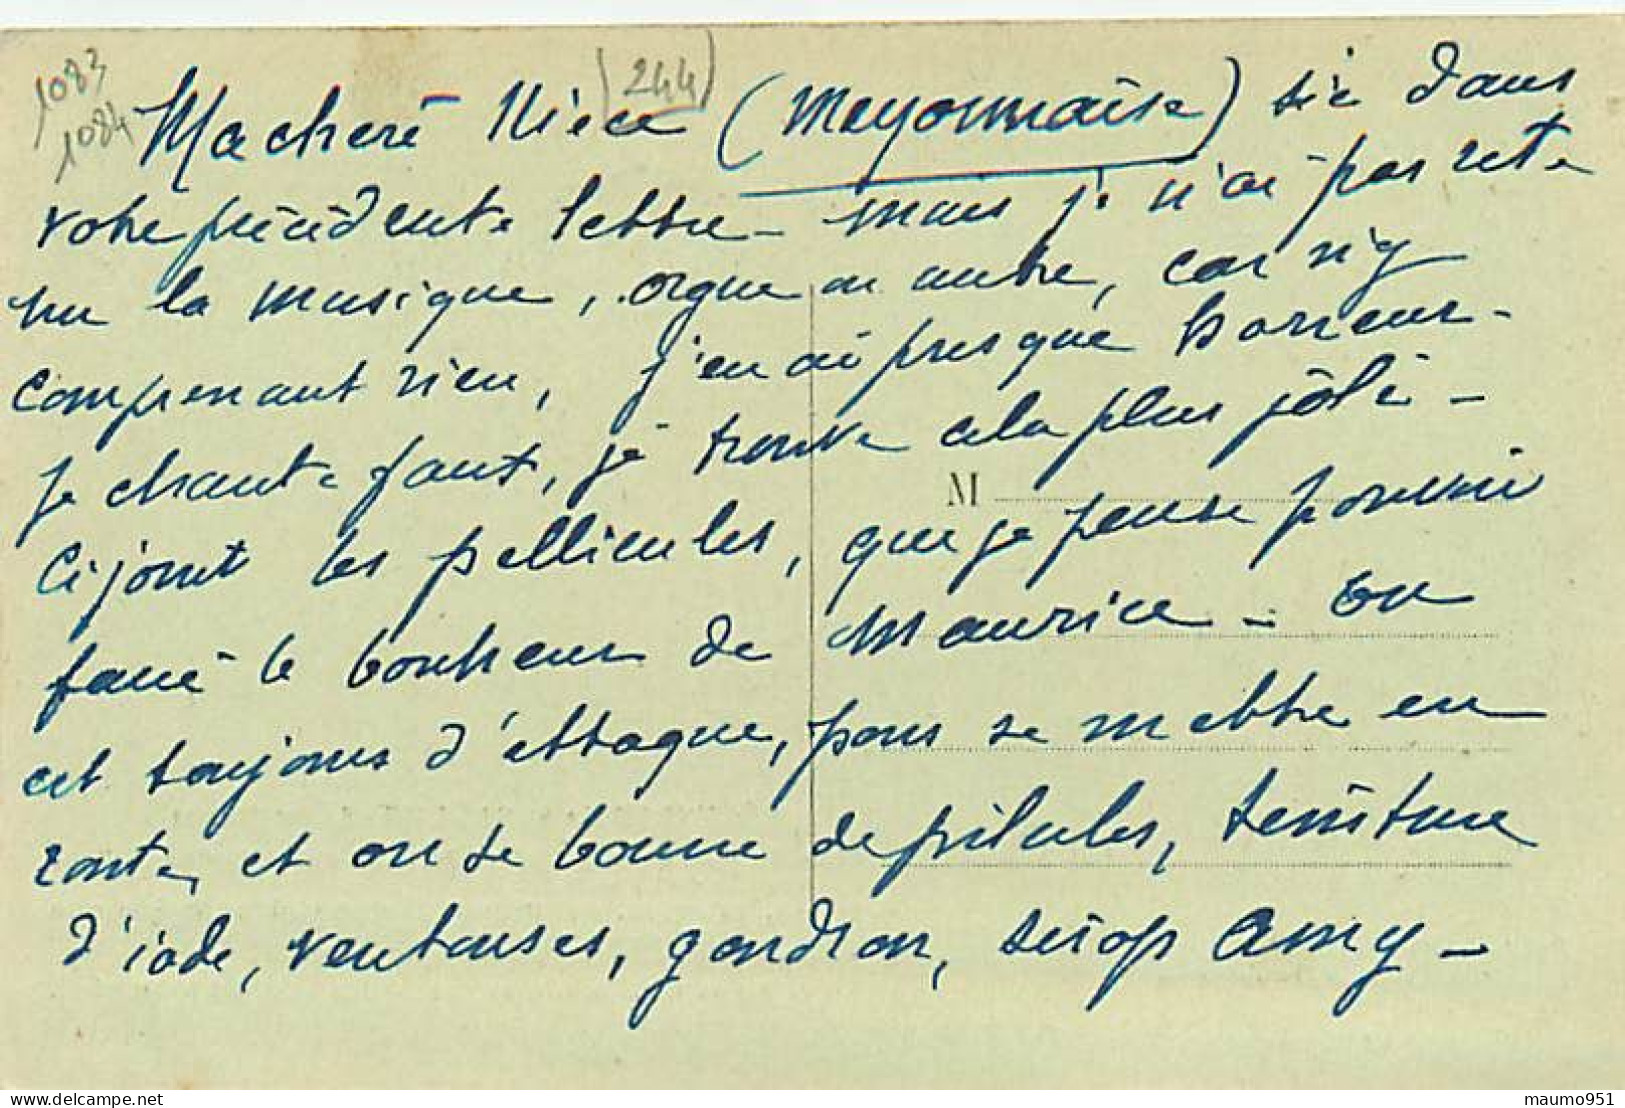 1083
1084
(244)
Ma chère Nièce (Mayonnaise) sic dans
votre précédente lettre - mais je n'ai pas
la musique, orgue ou autre, car n'y
comprenant rien, j'en ai presque horreur -
je chante faux, je trouve cela plus joli -
Ci joint les pellicules, que je pense pouvoir
faire le bonheur de Maurice - On
M
est toujours d'attaque, pour se mettre en
route, et on se bourre de pilules, teinture
d'iode, ventouses, goudron, sirop Amy -
delcampe.net
maumo951